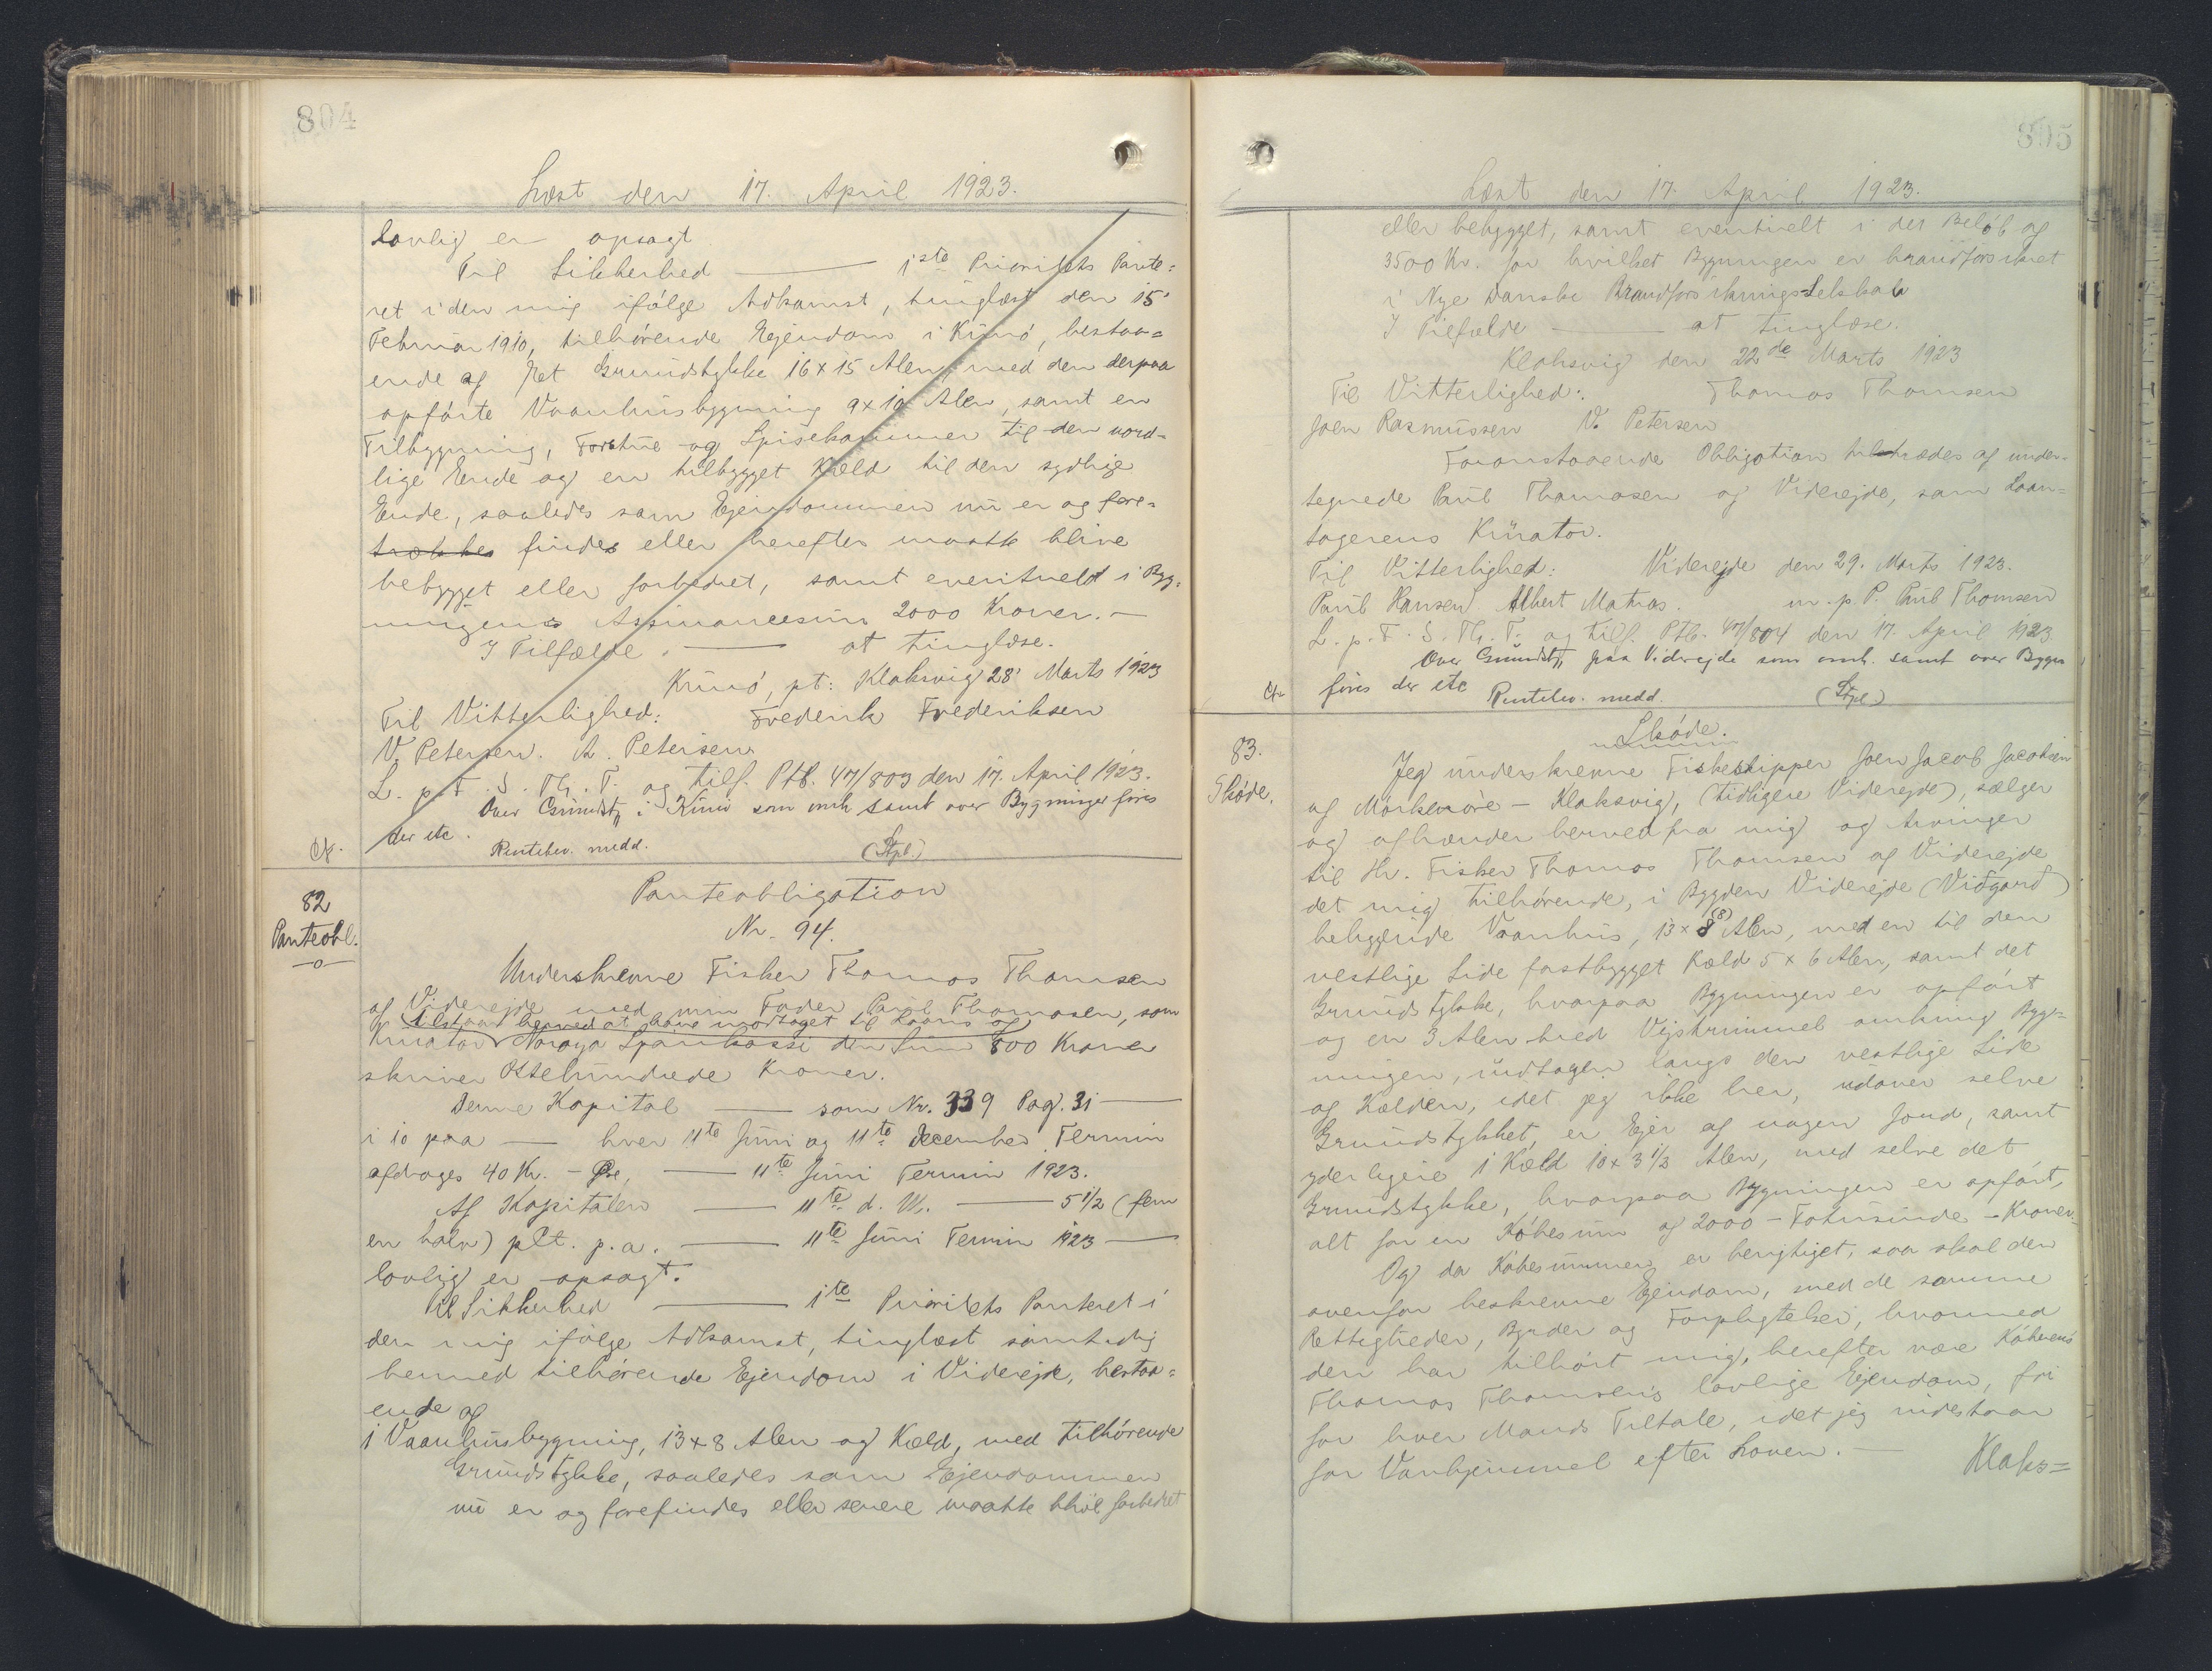 804
Læst den 17. April 1923.
Lovlig er opsagt
Til Sikkerhed ——— 1ste Prioritets Pante=
ret i den mig ifølge Adkomst, tinglæst den 15'
Februar 1910, tilhørende Ejendom i Kunø, bestaa=
ende af et Grundstykke 16 x 15 Alen, med den derpaa
opførte Vaanhusbygning 9 x 10 Alen, samt en
Tilbygning, Forstue og Spisekammer til den nord=
lige Ende og en tilbygget Kæld til den sydlige
Ende, saaledes som Ejendommen nu er og fore=
trækkes findes eller herefter maatte blive
bebygget eller forbedret, samt eventuelt i Byg=
ningens Assurancesum 2000 Kroner. —
I Tilfælde. ——— at tinglæse.
Kunø, pt: Klaksvig 28' Marts 1923
Til Vitterlighed: Frederik Frederiksen
V. Petersen. A. Petersen
L. p. F. S. Th. T. og tilf. Ptb. 47/803 den 17. April 1923.
Over Grundst. i Kunø som omh. samt over Bygninger føres
der etc. Rentebev. medd. (Stpl.)
82
Panteobl.
—o—
Panteobligation
Nr. 94.
Underskrevne Fisker Thomas Thomsen
af Viderejde med min Fader Paul Thomasen, som
tilstaar herved at have modtaget til Laans af
Kurator Norøya Sparikassi den Sum 800 Kroner
skriver Ottehundrede Kroner.
Denne Kapital —— som Nr. 339 Pag. 31 ——
i 10 paa —— hver 11te Juni og 11te December Termin
afdrages 40 Kr. - Øre, —— 11te Juni Termin 1923.
Af Kapitalen —— 11te d. M. —— 5 1/2 (fem
en halv) pCt. p. a. —— 11te Juni Termin 1923 ——
lovlig er opsagt.
Til Sikkerhed ——— 1te Prioritets Panteret i
den mig ifølge Adkomst, tinglæst samtidig
hermed tilhørende Ejendom i Viderejde, bestaa=
ende af
1 Vaanhusbygning, 13 x 8 Alen og Kæld, med tilhørende
Grundstykke, saaledes som Ejendommen
nu er og forefindes eller senere maatte blive forbedret
805
Læst den 17. April 1923.
eller bebygget, samt eventuelt i det Beløb af
3500 Kr. for hvilket Bygningen er brandforsikret
i Nye Danske Brandforsikrings-Selskab
I Tilfælde ——— at tinglæse.
Klaksvig den 22de Marts 1923
Til Vitterlighed: Thomas Thomsen
Joen Rasmussen V. Petersen
Foranstaaende Obligation tiltrædes af under=
tegnede Paul Thomasen af Viderejde, som Laan=
tagerens Kurator.
Til Vitterlighed: Viderejde den 29. Marts 1923.
Paul Hansen Albert Matras. m. p. P. Paul Thomsen
L. p. F. S. Th. T. og tilf. Ptb. 47/804 den 17. April 1923
Over Grundst. paa Viderejde som omh. samt over Bygn
føres der etc Rentebev. medd. (Stpl.)
83.
Skøde.
Skøde.
Jeg underskrevne Fiskeskipper Joen Jacob Jacobsen
af Markenøre - Klaksvig, (tidligere Viderejde), sælger
og afhænder herved fra mig og Arvinger
til Hr. Fisker Thomas Thomsen af Viderejde
det mig tilhørende, i Bygden Viderejde (Viðgarð)
beliggende Vaanhus, 13 x 8 (8) Alen, med en til den
vestlige Side fastbygget Kæld 5 x 6 Alen, samt det
Grundstykke, hvorpaa Bygningen er opført
og en 3 Alen bred Vejstrimmel omkring Byg=
ningen, undtagen langs den vestlige Side
og Kælden, idet jeg ikke her, udover selve
Grundstykket, er Ejer af nogen Jord, samt
yderligere 1 Kæld 10 x 3 1/2 Alen, med selve det
Grundstykke, hvorpaa Bygningen er opført,
alt for en Købesum af 2000 - Totusinde - Kroner.
Og da Købesummen er berigtiget, saa skal den
ovenfor beskrevne Ejendom, med de samme
Rettigheder, Byrder og Forpligtelser, hvormed
den har tilhørt mig, herefter være Køberens
Thomas Thomsens lovlige Ejendom, fri
for hver Mands Tiltale, idet jeg indestaar
for Vanhjemmel efter Loven. — Klaks=